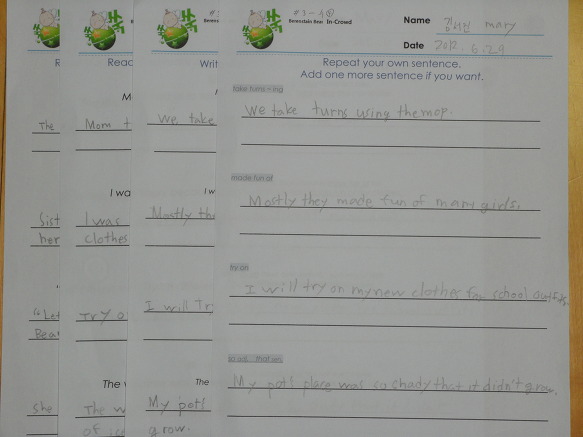 R
The
Sist
her
"Let
Bear
she
Read
M
Mom t
I wa
I was
clothes
Try o
The w
The w
of ic
Writ
We take
I w
Mostly the
I will Tr
The
My potl
grow.
#3-1
Berenstain Bear In-Crowd
Name mary
Date 2012. 6. 29
Repeat your own sentence.
Add one more sentence if you want.
take turns ~ing
We take turns using the mop.
made fun of
Mostly they made fun of many girls.
try on
I will try on my new clothes for school outfits.
so adj. that
My potl place was so shady that it didn't grow.